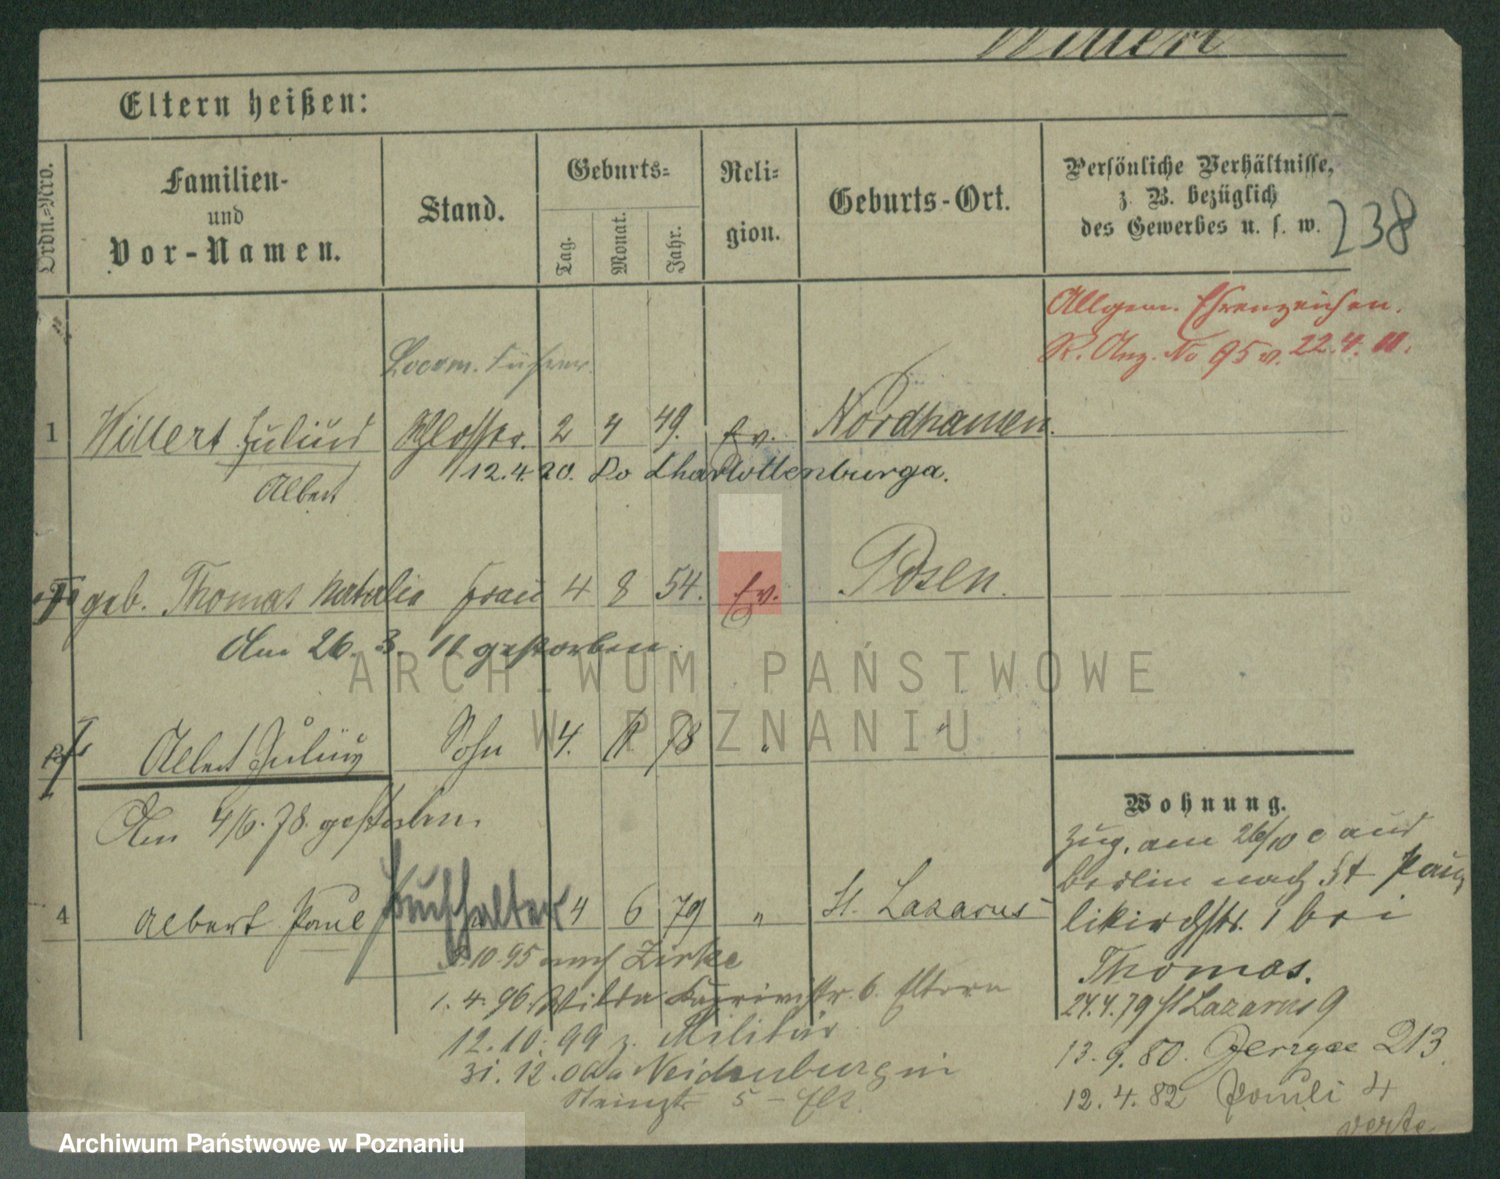 Willert
Eltern heißen:
Ordn.=Nro.
Familien-
und
Vor-Namen.
Stand.
Geburts=
Tag.
Monat.
Jahr.
Reli=
gion.
Geburts-Ort.
Persönliche Verhältnisse,
z. B. bezüglich
des Gewerbes u. s. w.
238
Allgem. Ehrenzeichen.
R. Anz. No 95 v. 22.4.11.
Locom. Führer.
1 Willert Julius Schlosser. 2 4 49. Ev. Nordhausen.
Albert
12.4.20. Charlottenburg
geb. Thomas Natalie Frau 4 8 54. Ev. Posen.
Am 26. 3. 11 gestorben.
Albert Julius Sohn 4. 78 "
Am 4/6. 78. gestorben.
Buchhalter
4 Albert Paul 4 6 79 " St. Lazarus
10 95 nach Zirke
1. 4. 96. Wilda b. Eltern
12. 10. 99 z. Militär
31. 12. Neidenburg in
5
Wohnung.
Zug. am 26/10 c aus
Berlin nach St Pau
likirchstr. 1 bei
Thomas.
24.4.79 St Lazarus 9
13. 9. 80. Jerzyce 213
12. 4. 82 Pauli 4
verte
ARCHIWUM PAŃSTWOWE
W POZNANIU
Archiwum Państwowe w Poznaniu